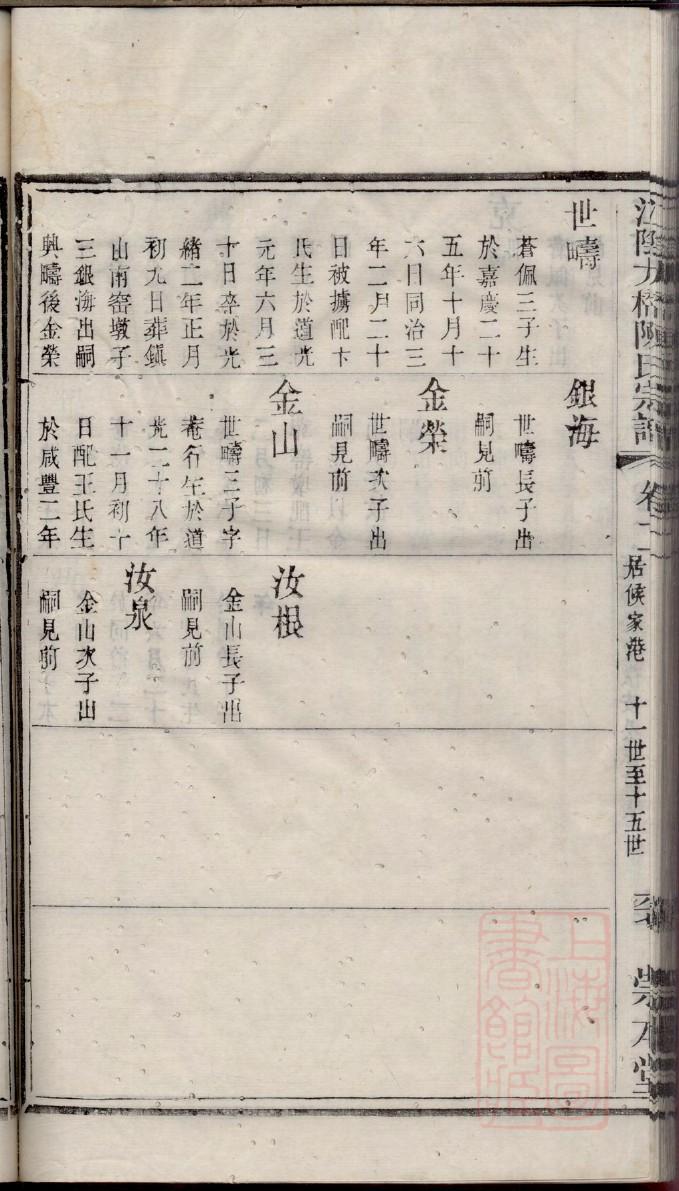 江陰九橋陳氏宗譜
卷二
居候家港
十一世至十五世
崇本堂
世疇
蒼佩三子生
於嘉慶二十
五年十月十
六日同治三
年二月二十
日被擄配卞
氏生於道光
元年六月三
十日卒於光
緒二年正月
初九日葬鎮
山南窑墩子
三銀海出嗣
興疇後金榮
銀海
世疇長子出
嗣見前
金榮
世疇次子出
嗣見前
金山
世疇三子字
菴行生於道
光二十八年
十一月初十
日配王氏生
於咸豐二年
汝根
金山長子出
嗣見前
汝泉
金山次子出
嗣見前
上海圖書館藏